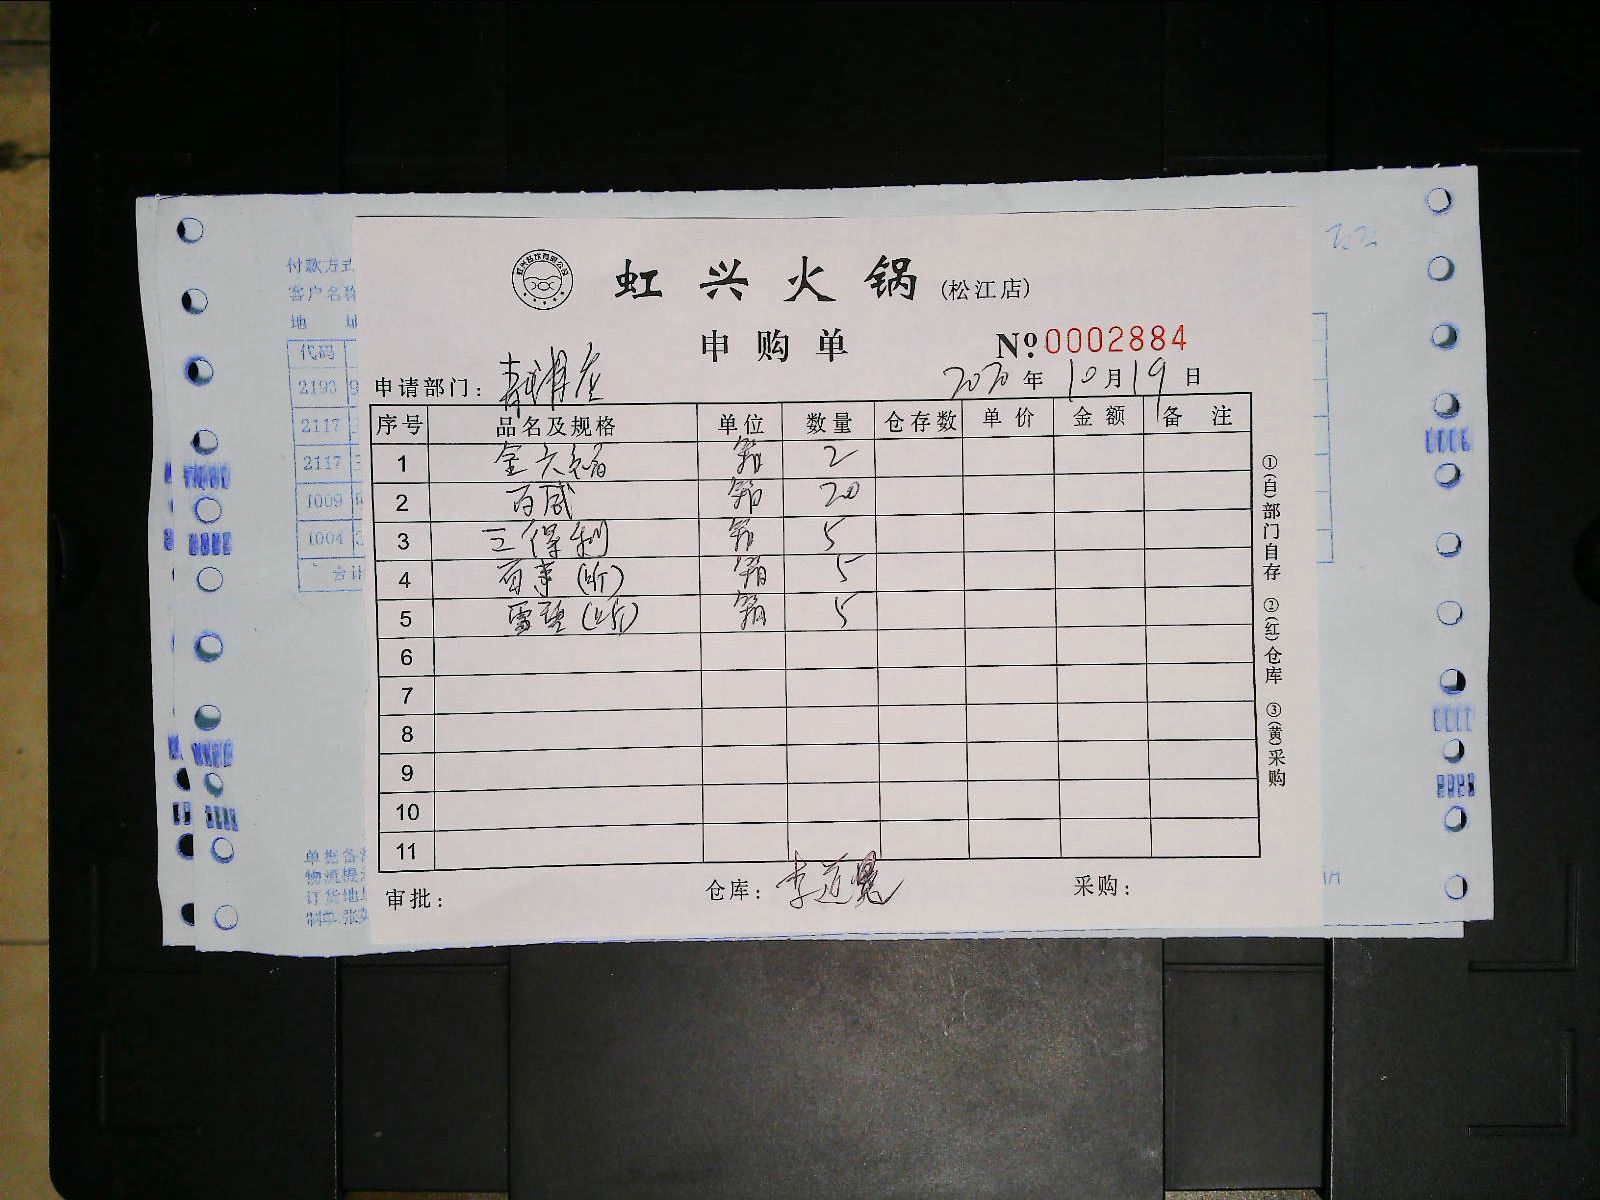 付款方式
客户名称
地 址
代码
2193
2117
2117
1009
1004
合计
虹兴火锅 (松江店)
申购单
№ 0002884
申请部门:
2020 年 10 月 19 日
序号 品名及规格 单位 数量 仓存数 单价 金额 备注
1 箱 2
2 百威 箱 20
3 三得利 箱 5
4 百事(听) 箱 5
5 雪碧(听) 箱 5
6
7
8
9
10
11
审批: 仓库: 李道 采购:
①(白)部门自存 ②(红)仓库 ③(黄)采购
单据备
物流提
订货地
制单